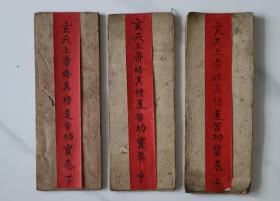 玄天上帝修真悟道苦功寶卷上
玄天上帝修真悟道苦功寶卷中
玄天上帝修真悟道苦功寶卷下